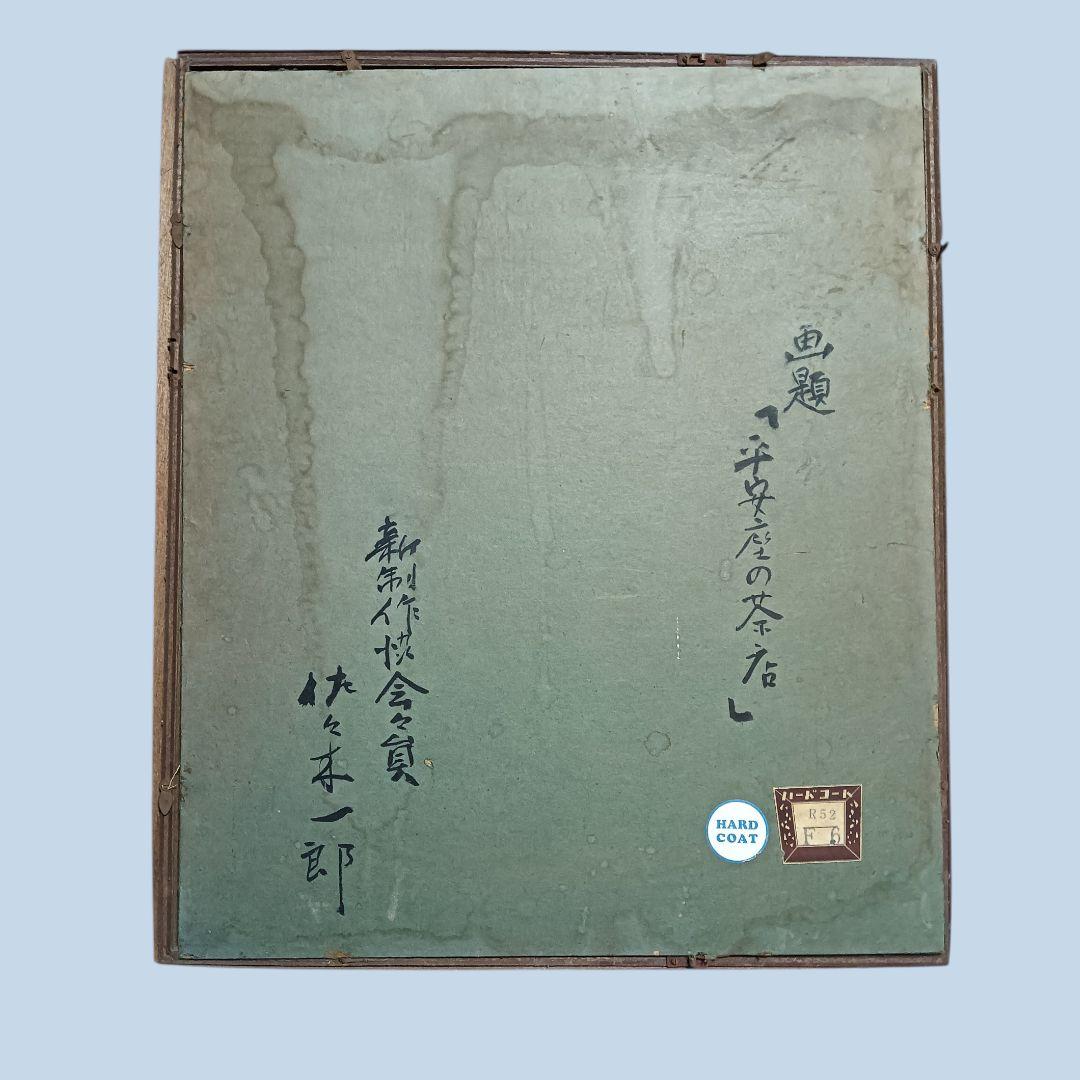 画題
「平安座の茶店」
新制作協会々員
佐々木一郎
HARD
COAT
ハードコート
R52
F 6